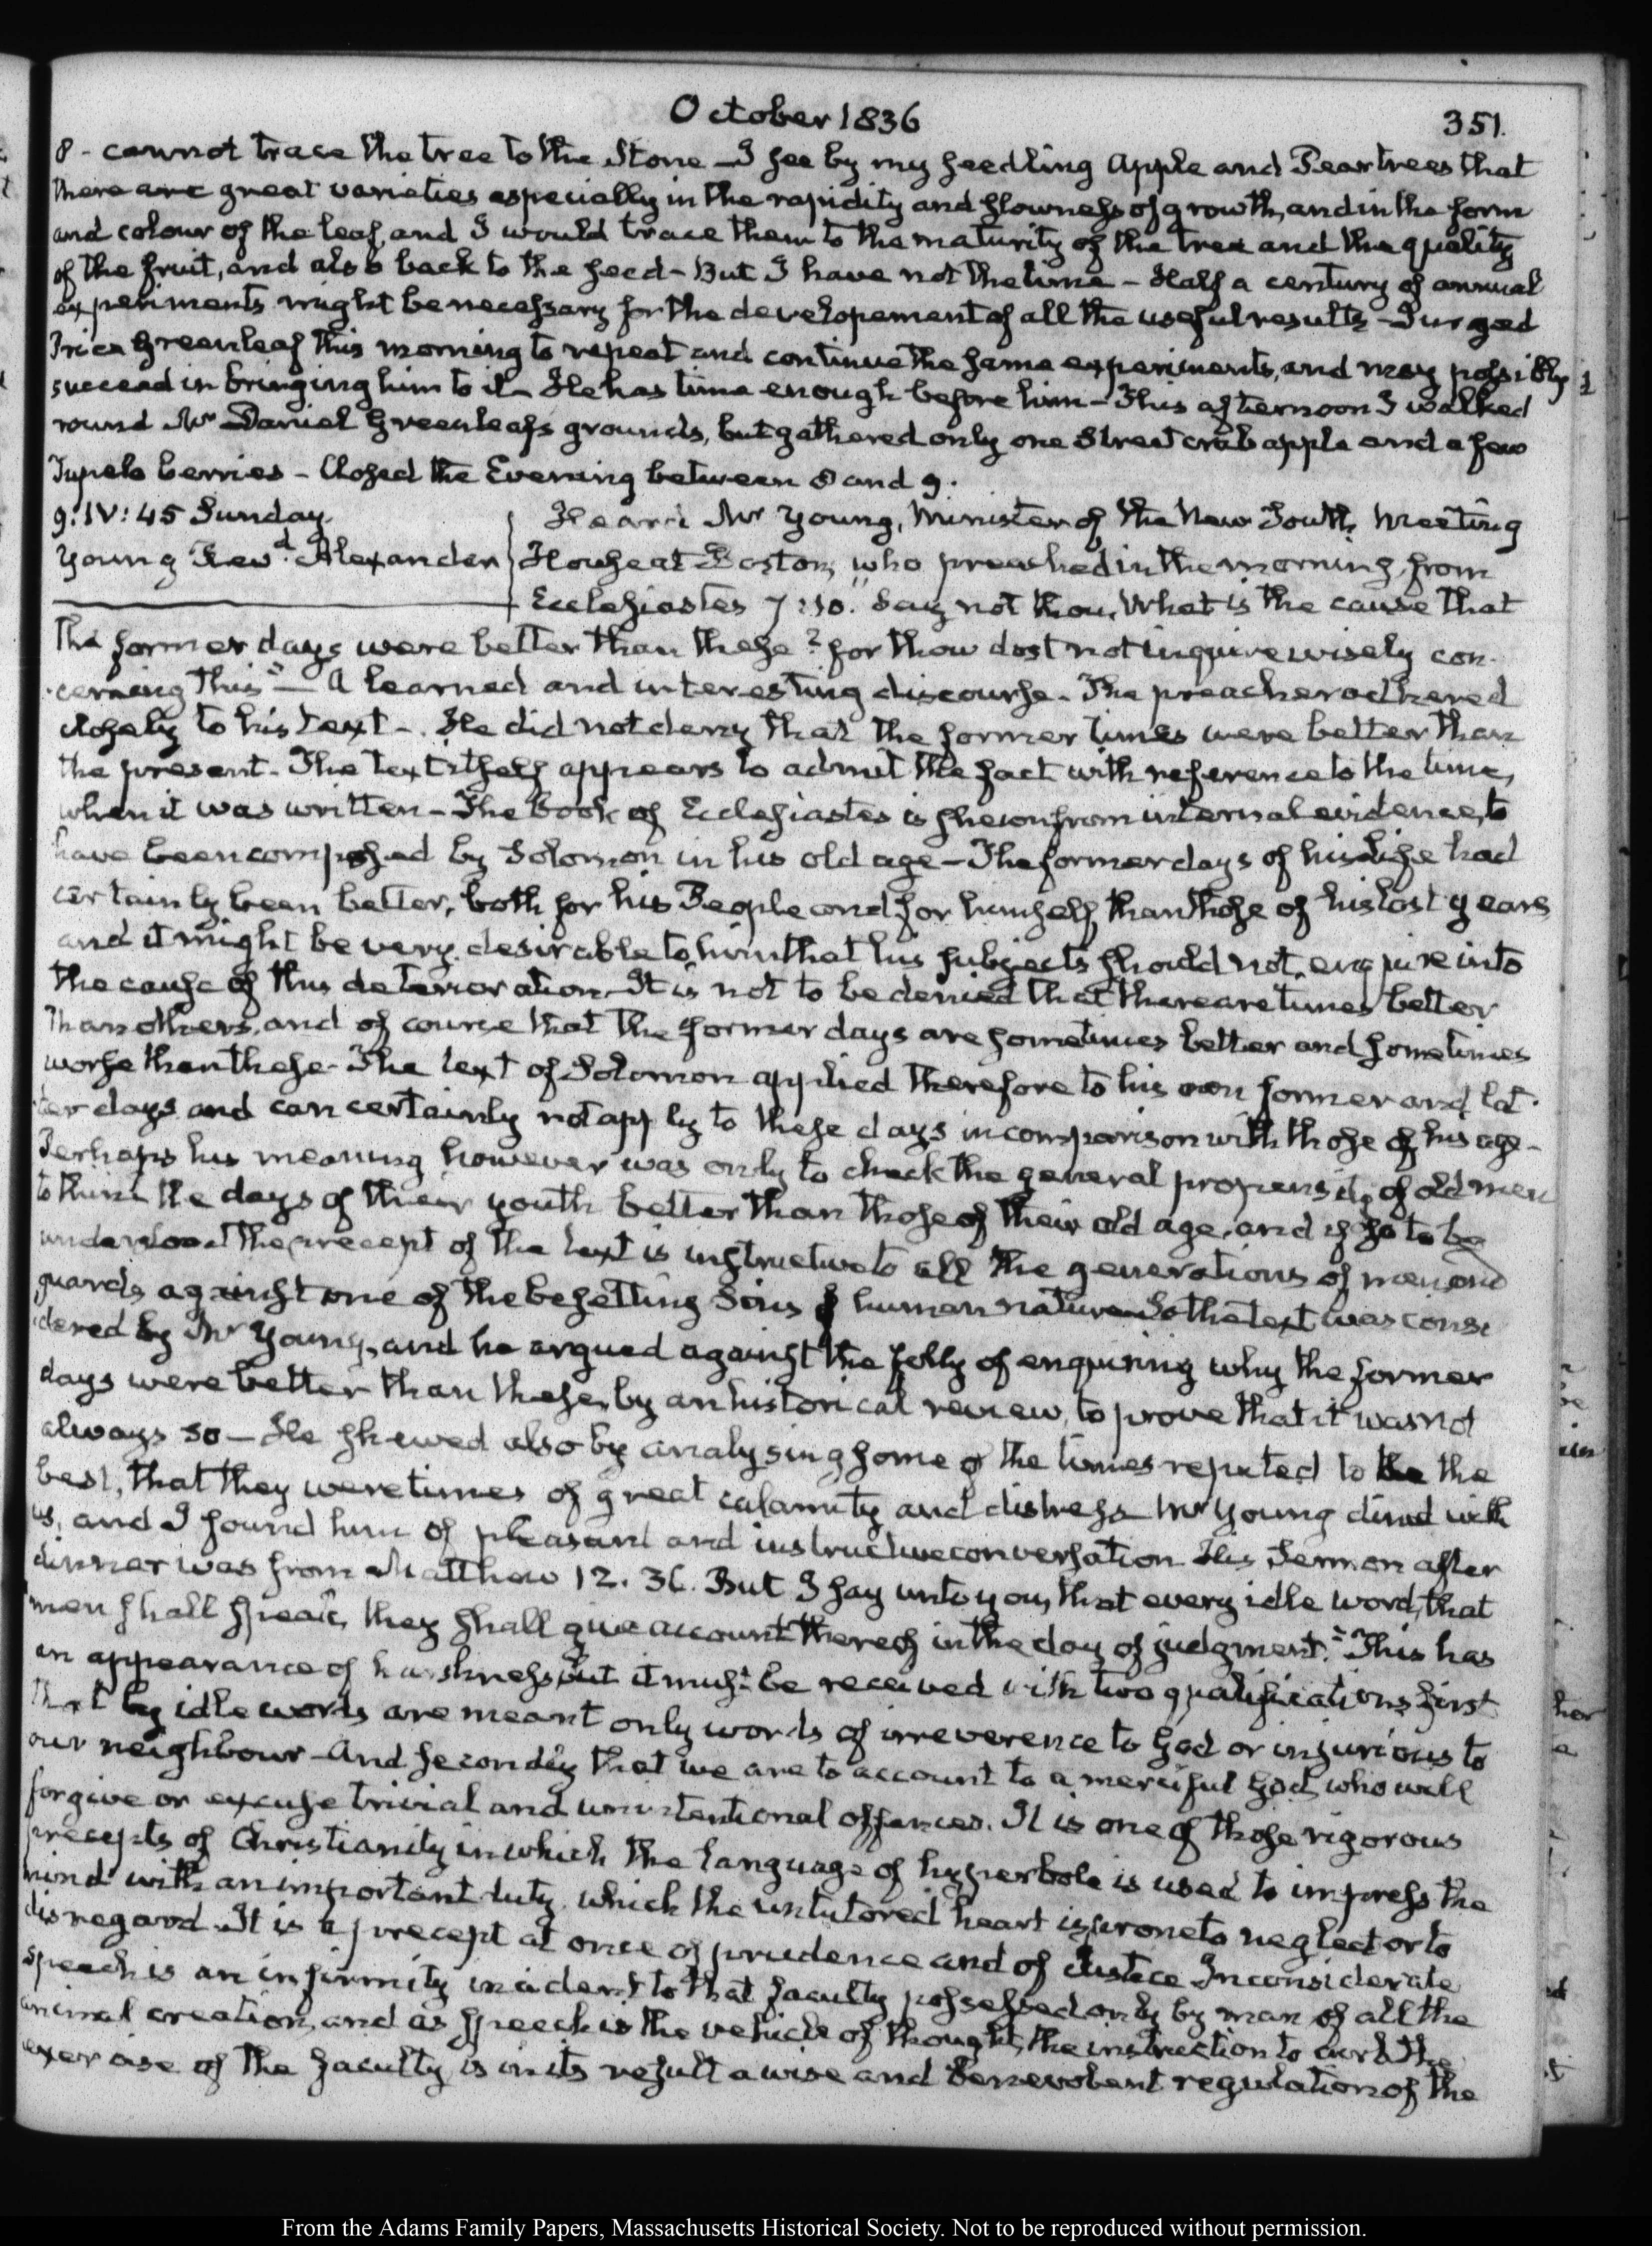 October 1836
351.
8 - cannot trace the tree to the Stone - I see by my seedling Apple and Pear trees that
there are great varieties especially in the rapidity and slowness of growth, and in the form
and colour of the leaf, and I would trace them to the maturity of the tree and the quality
of the fruit, and also back to the seed - But I have not the time - Half a century of annual
experiments might be necessary for the developement of all the useful results - I urged
Price Greenleaf this morning to repeat and continue the same experiments, and may possibly
succeed in bringing him to it - He has time enough before him - This afternoon I walked
round Mr Daniel Greenleaf's grounds, but gathered only one Street crab apple and a few
Tupelo berries - Closed the Evening between 8 and 9.
9. IV: 45 Sunday.
Young Revd. Alexander
Heard Mr Young, Minister of the New South Meeting
House at Boston, who preached in the morning, from
Ecclesiastes 7:10. "Say not thou, What is the cause that
the former days were better than these? for thou dost not inquire wisely con-
cerning this" - A learned and interesting discourse. The preacher adhered
closely to his text -. He did not deny that the former times were better than
the present. The text itself appears to admit the fact with reference to the time,
when it was written - The book of Ecclesiastes is shewn from internal evidence, to
have been composed by Solomon in his old age - The former days of his life had
certainly been better, both for his People and for himself, than those of his last years
and it might be very desirable to him that his subjects should not enquire into
the cause of this deterioration - It is not to be denied that there are times better
than others, and of course that the former days are sometimes better and sometimes
worse than these. The text of Solomon applied therefore to his own former and lat-
ter days, and can certainly not apply to these days in comparison with those of his age -
Perhaps his meaning however was only to check the general propensity of old men
to think the days of their youth better than those of their old age, and if so to be
understood the precept of the text is instructive to all the generations of men and
guards against one of the besetting Sins of human nature - So the text was consi
dered by Mr Young, and he argued against the folly of enquiring why the former
days were better than these, by an historical review, to prove that it was not
always so - He shewed also by analysing some of the times reputed to be the
best, that they were times of great calamity and distress - Mr Young dined with
us, and I found him of pleasant and instructive conversation. His Sermon after
dinner was from Matthew 12. 36. But I say unto you, that every idle word, that
men shall speak, they shall give account thereof in the day of judgment." This has
an appearance of harshness but it must be received with two qualifications, first
that by idle words are meant only words of irreverence to God or injurious to
our neighbour - And secondly that we are to account to a merciful God, who will
forgive or excuse trivial and unintentional offences. It is one of those rigorous
precepts of Christianity in which the language of hyperbole is used to impress the
mind with an important duty, which the untutored heart is prone to neglect or to
disregard. It is a precept at once of prudence and of Justice. Inconsiderate
speech is an infirmity incident to that faculty possessed only by man of all the
animal creation, and as speech is the vehicle of thought, the instruction to curb the
exercise of the faculty is in its result a wise and benevolent regulation of the
From the Adams Family Papers, Massachusetts Historical Society. Not to be reproduced without permission.